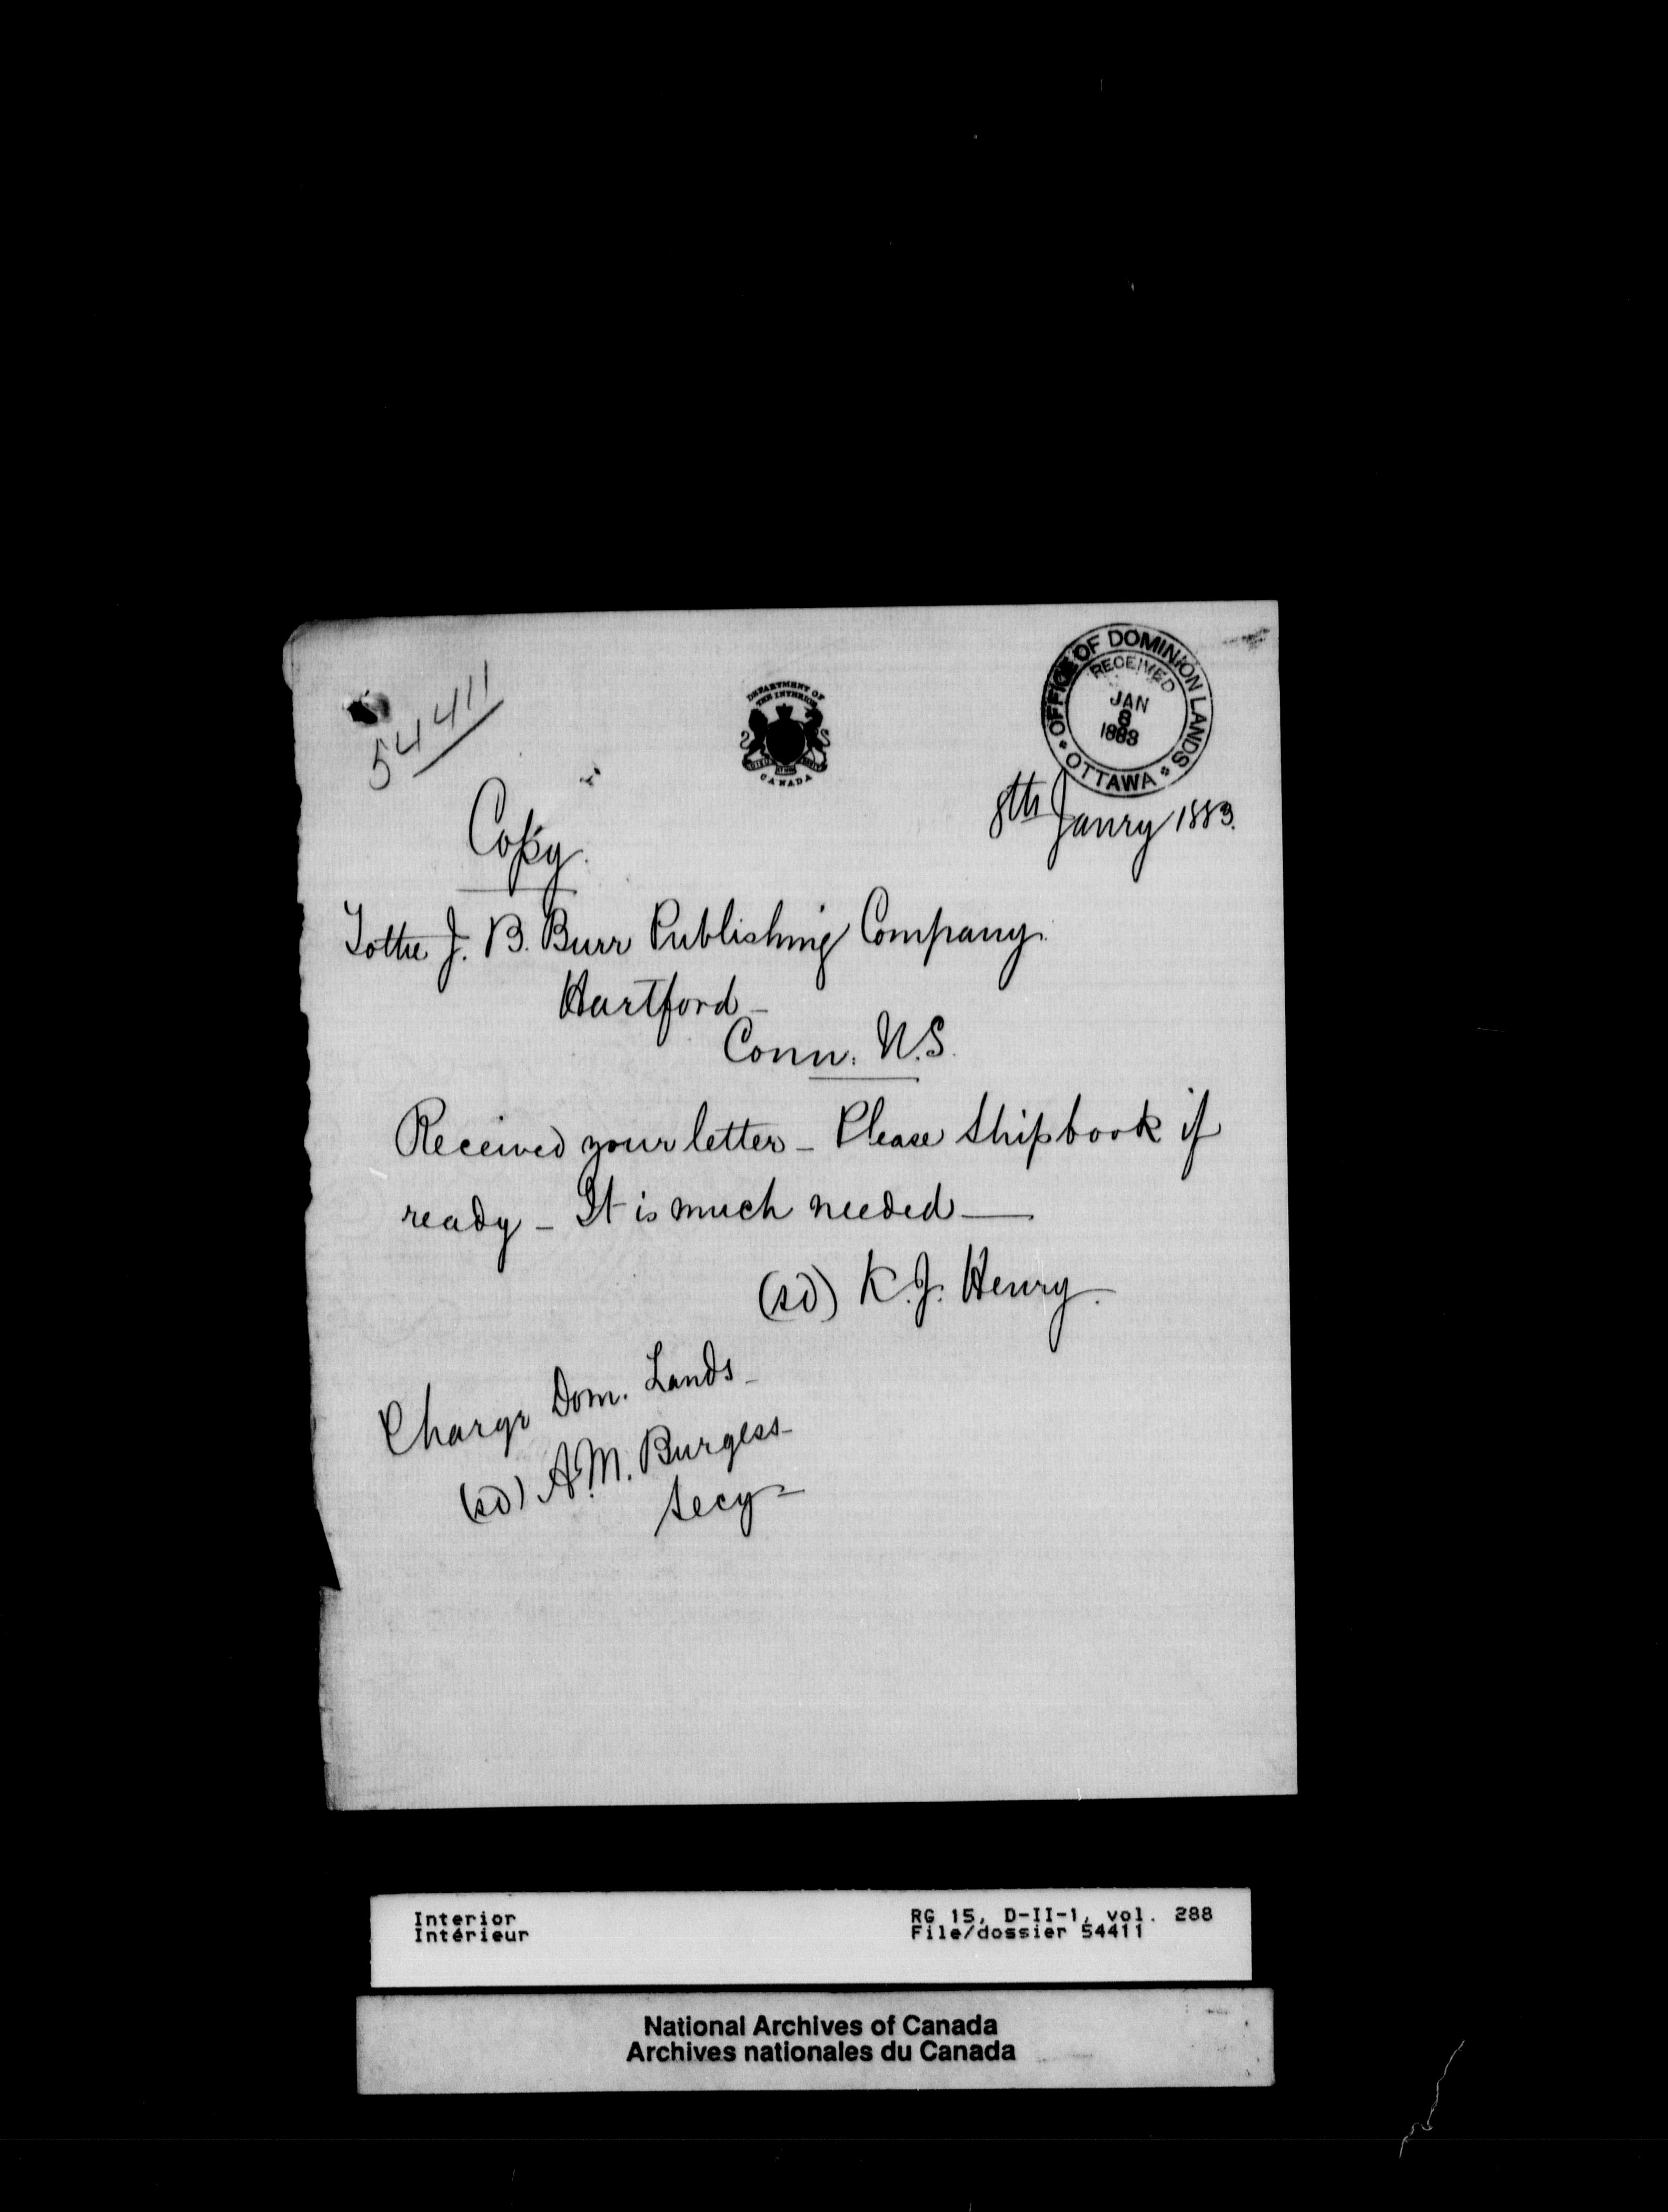 54411
DEPARTMENT OF
THE INTERIOR
CANADA
OFFICE OF DOMINION LANDS
RECEIVED
JAN
8
1883
OTTAWA
8th Janry 1883.
Copy.
To the J. B. Burr Publishing Company.
Hartford -
Conn. U.S.
Received your letter - Please ship book if
ready - It is much needed -
(sd) K. J. Henry.
Charge Dom. Lands -
(sd) A. M. Burgess -
Secy -
Interior
Intérieur
RG 15, D-II-1, vol. 288
File/dossier 54411
National Archives of Canada
Archives nationales du Canada